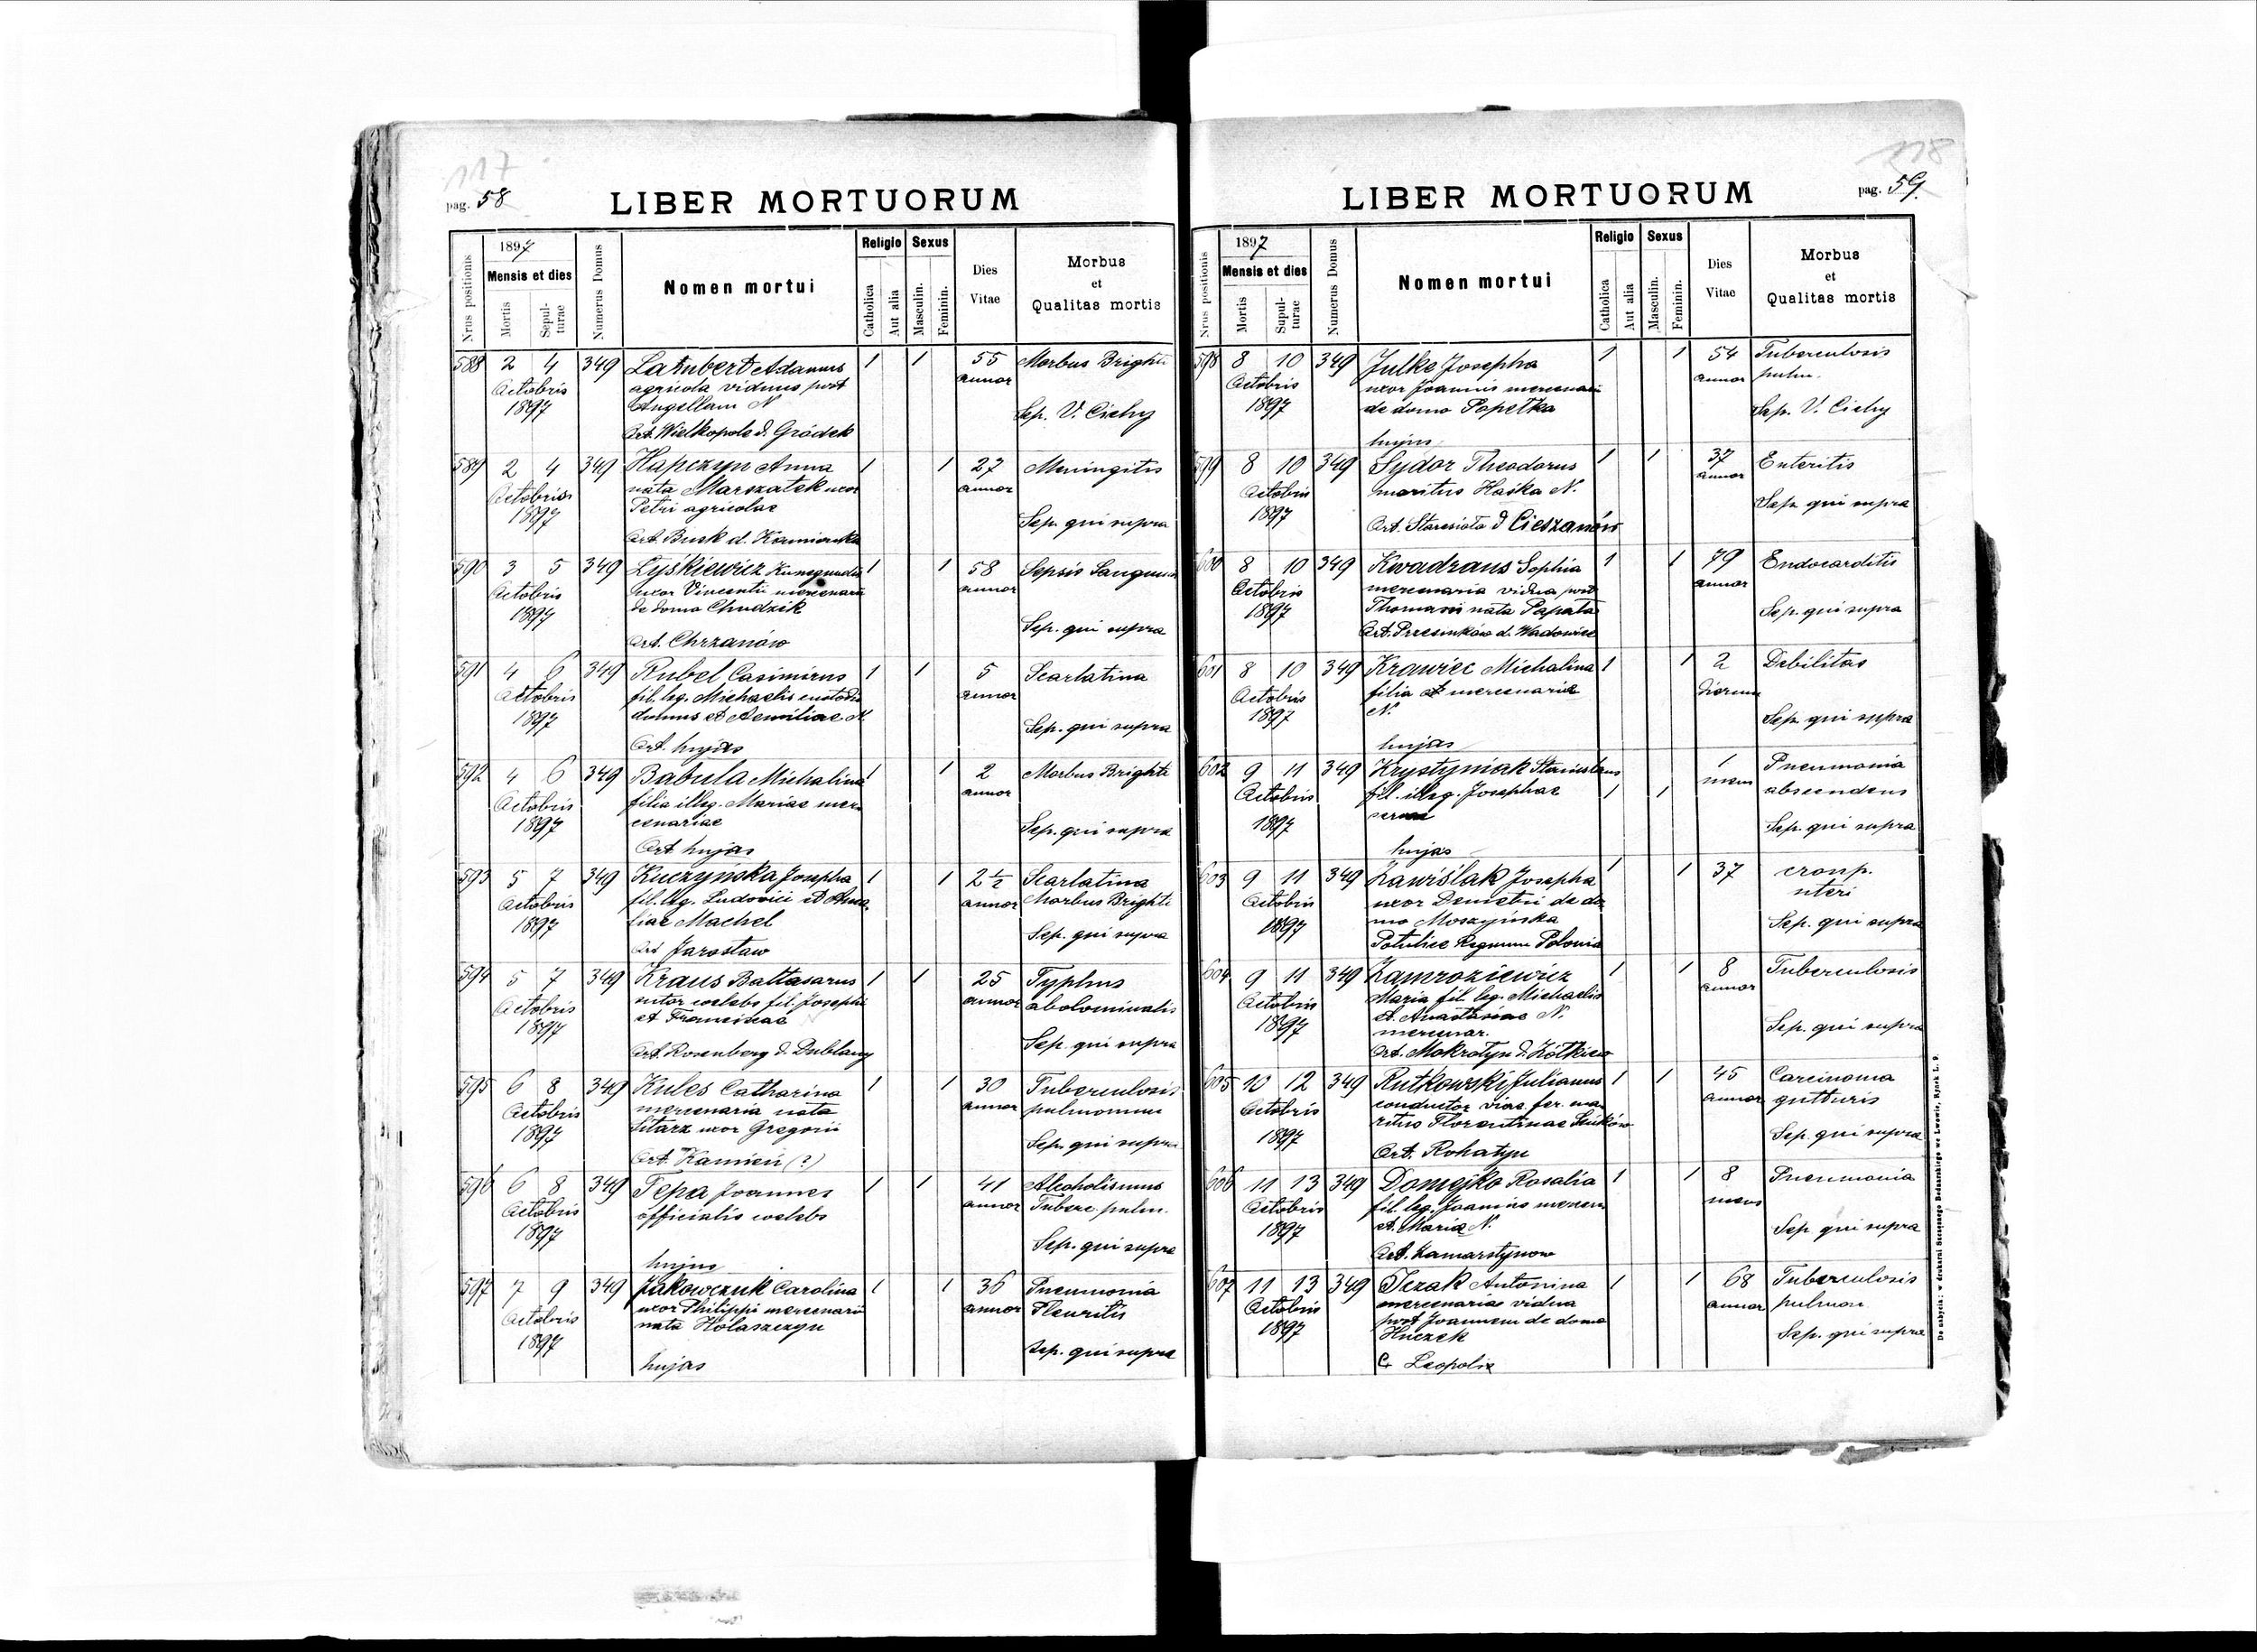 117
pag. 58
LIBER MORTUORUM
Nrus positionis
1897
Mensis et dies
Mortis
Sepulturae
Numerus Domus
Nomen mortui
Religio
Catholica
Aut alia
Sexus
Masculin.
Feminin.
Dies
Vitae
Morbus
et
Qualitas mortis
588 2 4 349 Lambert Adamus 1 1 55 Morbus Brighti
Octobris agricola viduus post annor
1897 Angellam N Sep. V. Cichy
Ort. Wielkopole d. Gródek
589 2 4 349 Hapczyn Anna 1 1 27 Meningitis
Octobris nata Marszałek uxor annor
1897 Petri agricolae Sep. qui supra
Ort. Busk d. Kamionka
590 3 5 349 Łyśkiewicz Kunegundis 1 1 58 Sepsis Sanguinis
Octobris uxor Vincentii mercenarii annor
1897 de domo Chudzik Sep. qui supra
Ort. Chrzanów
591 4 6 349 Rubel Casimirus 1 1 5 Scarlatina
Octobris fil. leg. Michaelis custodis annor
1897 domus et Aemiliae N. Sep. qui supra
Ort. hujas
592 4 6 349 Babula Michalina 1 1 2 Morbus Brighti
Octobris filia illeg. Mariae mer- annor
1897 cenariae Sep. qui supra
Ort hujas
593 5 7 349 Kuczyńska Josepha 1 1 2 1/2 Scarlatina
Octobris fil. leg. Ludovici et Ama- annor Morbus Brighti
1897 liae Machel Sep. qui supra
Ort Jarosław
594 5 7 349 Kraus Baltasarus 1 1 25 Typhus
Octobris sutor coelebs fil. Josephi annor abdominalis
1897 et Franciscae Sep. qui supra
Ort. Rosenberg d. Dublany
595 6 8 349 Kules Catharina 1 1 30 Tuberculosis
Octobris mercenaria nata annor pulmonum
1897 Sitarz uxor Gregorii Sep. qui supra
Ort. Kamień (?)
596 6 8 349 Tepa Joannes 1 1 41 Alcoholismus
Octobris officialis coelebs annor Tuberc. pulm.
1897 Sep. qui supra
hujus
597 7 9 349 Jakowczuk Carolina 1 1 36 Pneumonia
Octobris uxor Philippi mercenarii annor Pleuritis
1897 nata Hołaszczyn Sep. qui supra
hujas
118
pag. 59.
LIBER MORTUORUM
Nrus positionis
1897
Mensis et dies
Mortis
Supulturae
Numerus Domus
Nomen mortui
Religio
Catholica
Aut alia
Sexus
Masculin.
Feminin.
Dies
Vitae
Morbus
et
Qualitas mortis
598 8 10 349 Julke Josepha 1 1 54 Tuberculosis
Octobris uxor Joannis mercenarii annor pulm.
1897 de domo Papetka Sep. V. Cichy
hujus
599 8 10 349 Sydor Theodorus 1 1 37 Enteritis
Octobris maritus Haśka N. annor
1897 Sep. qui supra
Ort. Staresioło d Cieszanów
600 8 10 349 Kwadrans Sophia 1 1 79 Endocarditis
Octobris mercenaria vidua post annor
1897 Thomasis nata Papata Sep. qui supra
Ort. d. Wadowice
601 8 10 349 Krawiec Michalina 1 1 2 Debilitas
Octobris filia mercenariae dierum
1897 N. Sep. qui supra
hujas
602 9 11 349 Krystyniak Stanislaus 1 Pneumonia
Octobris fil. illeg. Josephae 1 1 mens abscendens
1897 servae Sep. qui supra
hujas
603 9 11 349 Zawiślak Josepha 1 1 37 cronp.
Octobris uxor Demetrii de do- uteri
1897 mo Moszyńska Sep. qui supra
Potulice Regnum Polonia
604 9 11 349 Zamroziewicz 1 1 8 Tuberculosis
Octobris Maria fil. leg. Michaelis annor
1897 et Anastasiae N. Sep. qui supra
mercenar.
Ort. Mokrotyn d. Żółkiew
605 10 12 349 Rutkowski Julianus 1 1 45 Carcinoma
Octobris conductor viae fer. ma- annor gutturis
1897 ritus Florentinae Sep. qui supra
Ort. Rohatyn
606 11 13 349 Domejko Rosalia 1 1 8 Pneumonia
Octobris fil. leg. Joannis mercen. mens
1897 et Maria N. Sep qui supra
Ort. Zamarstynow
607 11 13 349 Iczak Antonina 1 1 68 Tuberculosis
Octobris mercenaria vidua annor pulmon.
1897 post Joannem de domo Sep. qui supra
Huczek
Leopolis
De nabycia: w drukarni Szczęsnego Bednarskiego we Lwowie, Rynek L. 9.